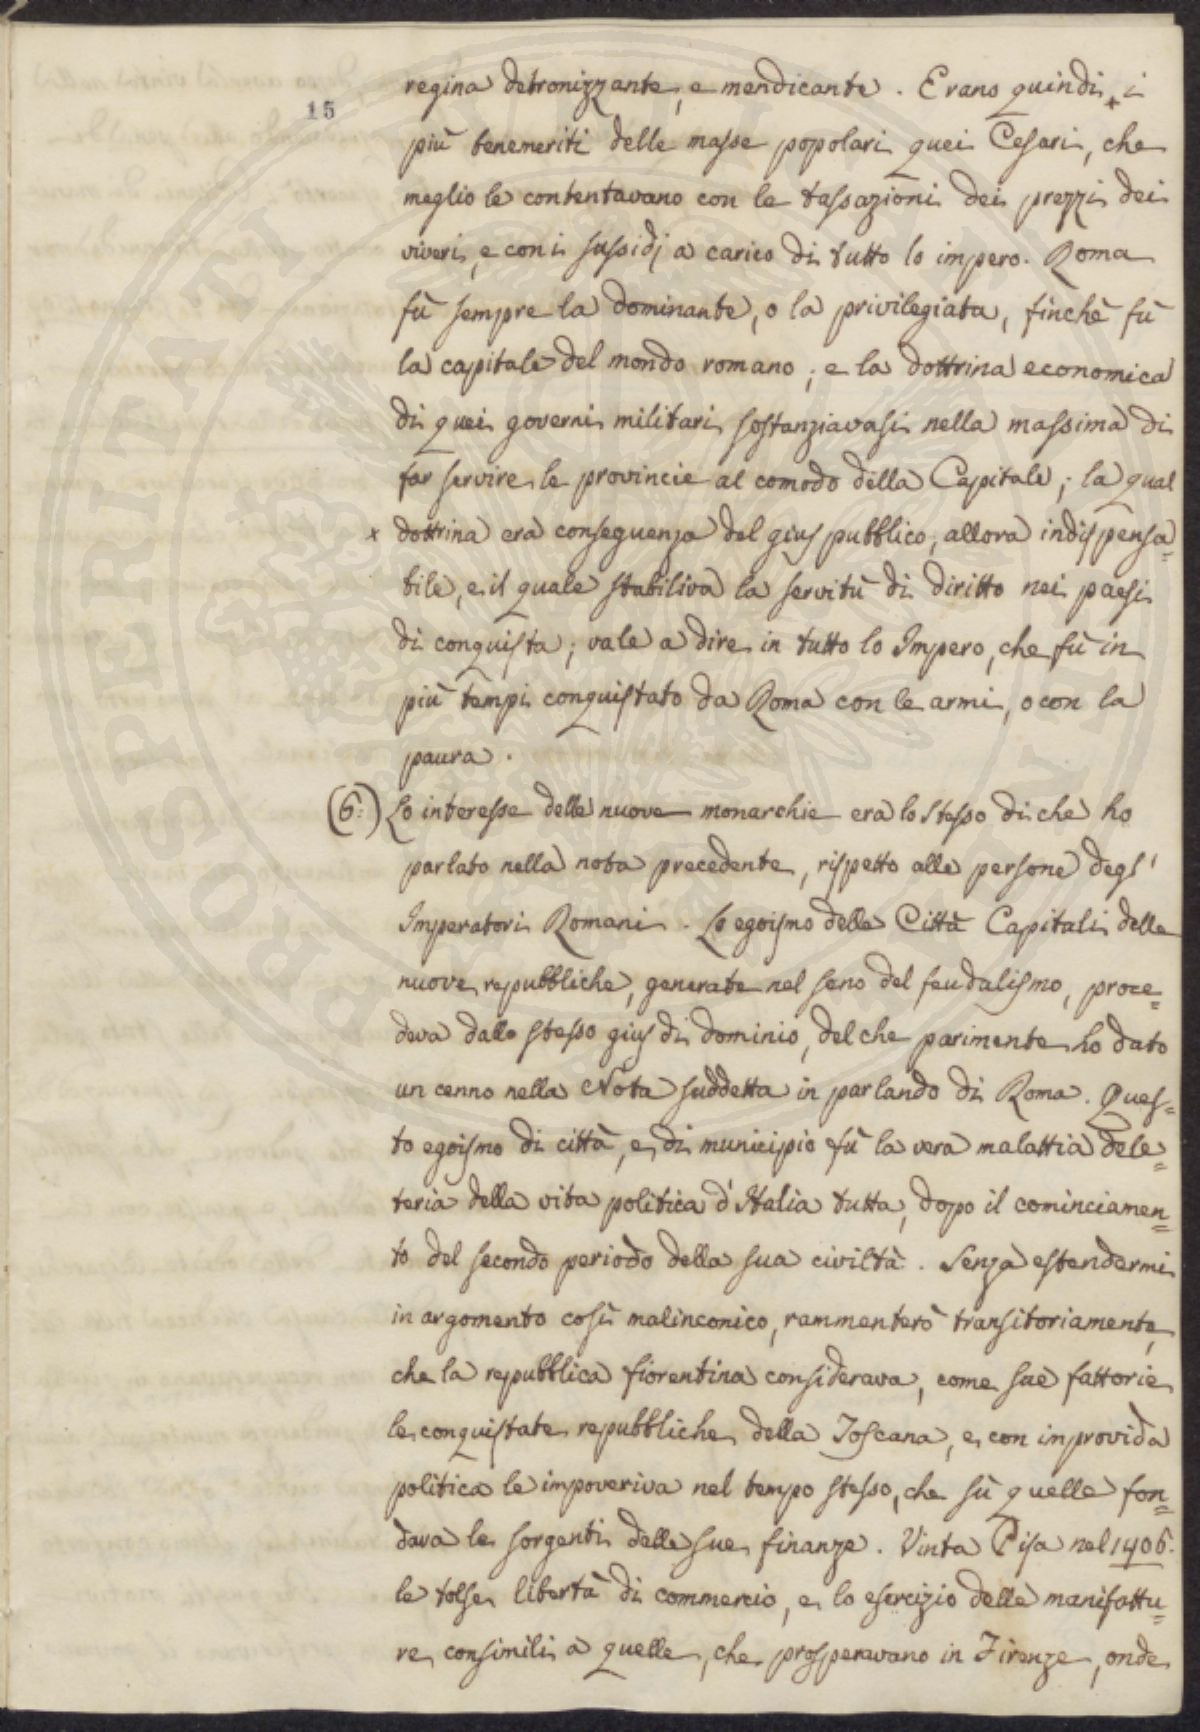 15
regina detronizzante, e mendicante. Erano quindi i
più benemeriti delle masse popolari quei Cesari, che
meglio le contentavano con le tassazioni dei prezzi dei
viveri, e con i sussidj a carico di tutto lo impero. Roma
fù sempre la dominante, o la privilegiata, finchè fù
la capitale del mondo romano; e la dottrina economica
di quei governi militari sostanziavasi nella massima di
far servire le provincie al comodo della Capitale; la qual
x dottrina era conseguenza del gius pubblico, allora indispensa=
bile, e il quale stabiliva la servitù di diritto nei paesi
di conquista; vale a dire in tutto lo Impero, che fù in
più tempi conquistato da Roma con le armi, o con la
paura.
(6.) Lo interesse delle nuove monarchie era lo stesso di che ho
parlato nella nota precedente, rispetto alle persone degl'
Imperatori Romani. Lo egoismo delle Città Capitali delle
nuove repubbliche, generate nel seno del feudalismo, proce=
deva dallo stesso gius di dominio, del che parimente ho dato
un cenno nella Nota suddetta in parlando di Roma. Ques=
to egoismo di città, e di municipio fù la vera malattia dele=
teria della vita politica d'Italia tutta, dopo il cominciamen=
to del secondo periodo della sua civiltà. Senza estendermi
in argomento così malinconico, rammenterò transitoriamente,
che la repubblica fiorentina considerava, come sue fattorie
le conquistate repubbliche della Toscana, e con improvida
politica le impoveriva nel tempo stesso, che sù quelle fon=
dava le sorgenti delle sue finanze. Vinta Pisa nel 1406.
le tolse libertà di commercio, e lo esercizio delle manifattu=
re consimili a quelle, che prosperavano in Firenze, onde
PROSPERITATI